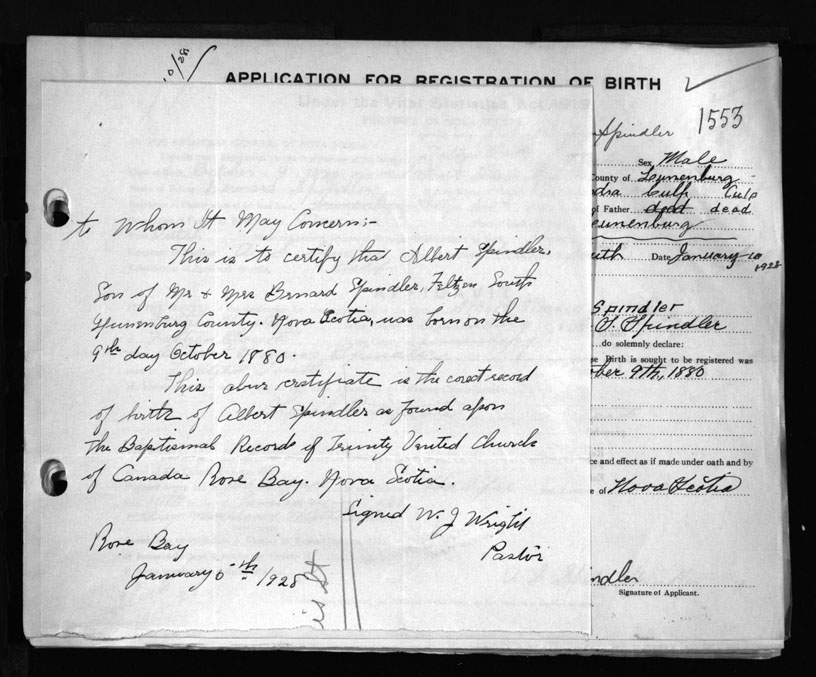 10/28
APPLICATION FOR REGISTRATION OF BIRTH
1553
Spindler
Sex Male
County of Lunenburg
Culp Culp
of Father dead dead
Lunenburg
Date January 10
1928
To Whom It May Concern:-
This is to certify that Albert Spindler,
Son of Mr & Mrs Brnard Spindler, Feltzen South
Lunenburg County. Nova Scotia, was born on the
9th day October 1880.
This abuv certificate is the corect record
of birth of Albert Spindler as found upon
the Baptismal Records of Trinity United Church
of Canada Rose Bay. Nova Scotia.
Signed W. J Wright
Pastor
Rose Bay
January 5th 1928
Spindler
Spindler
do solemnly declare:
Birth is sought to be registered was
ber 9th, 1880
ce and effect as if made under oath and by
e of Nova Scotia
ndler
Signature of Applicant.